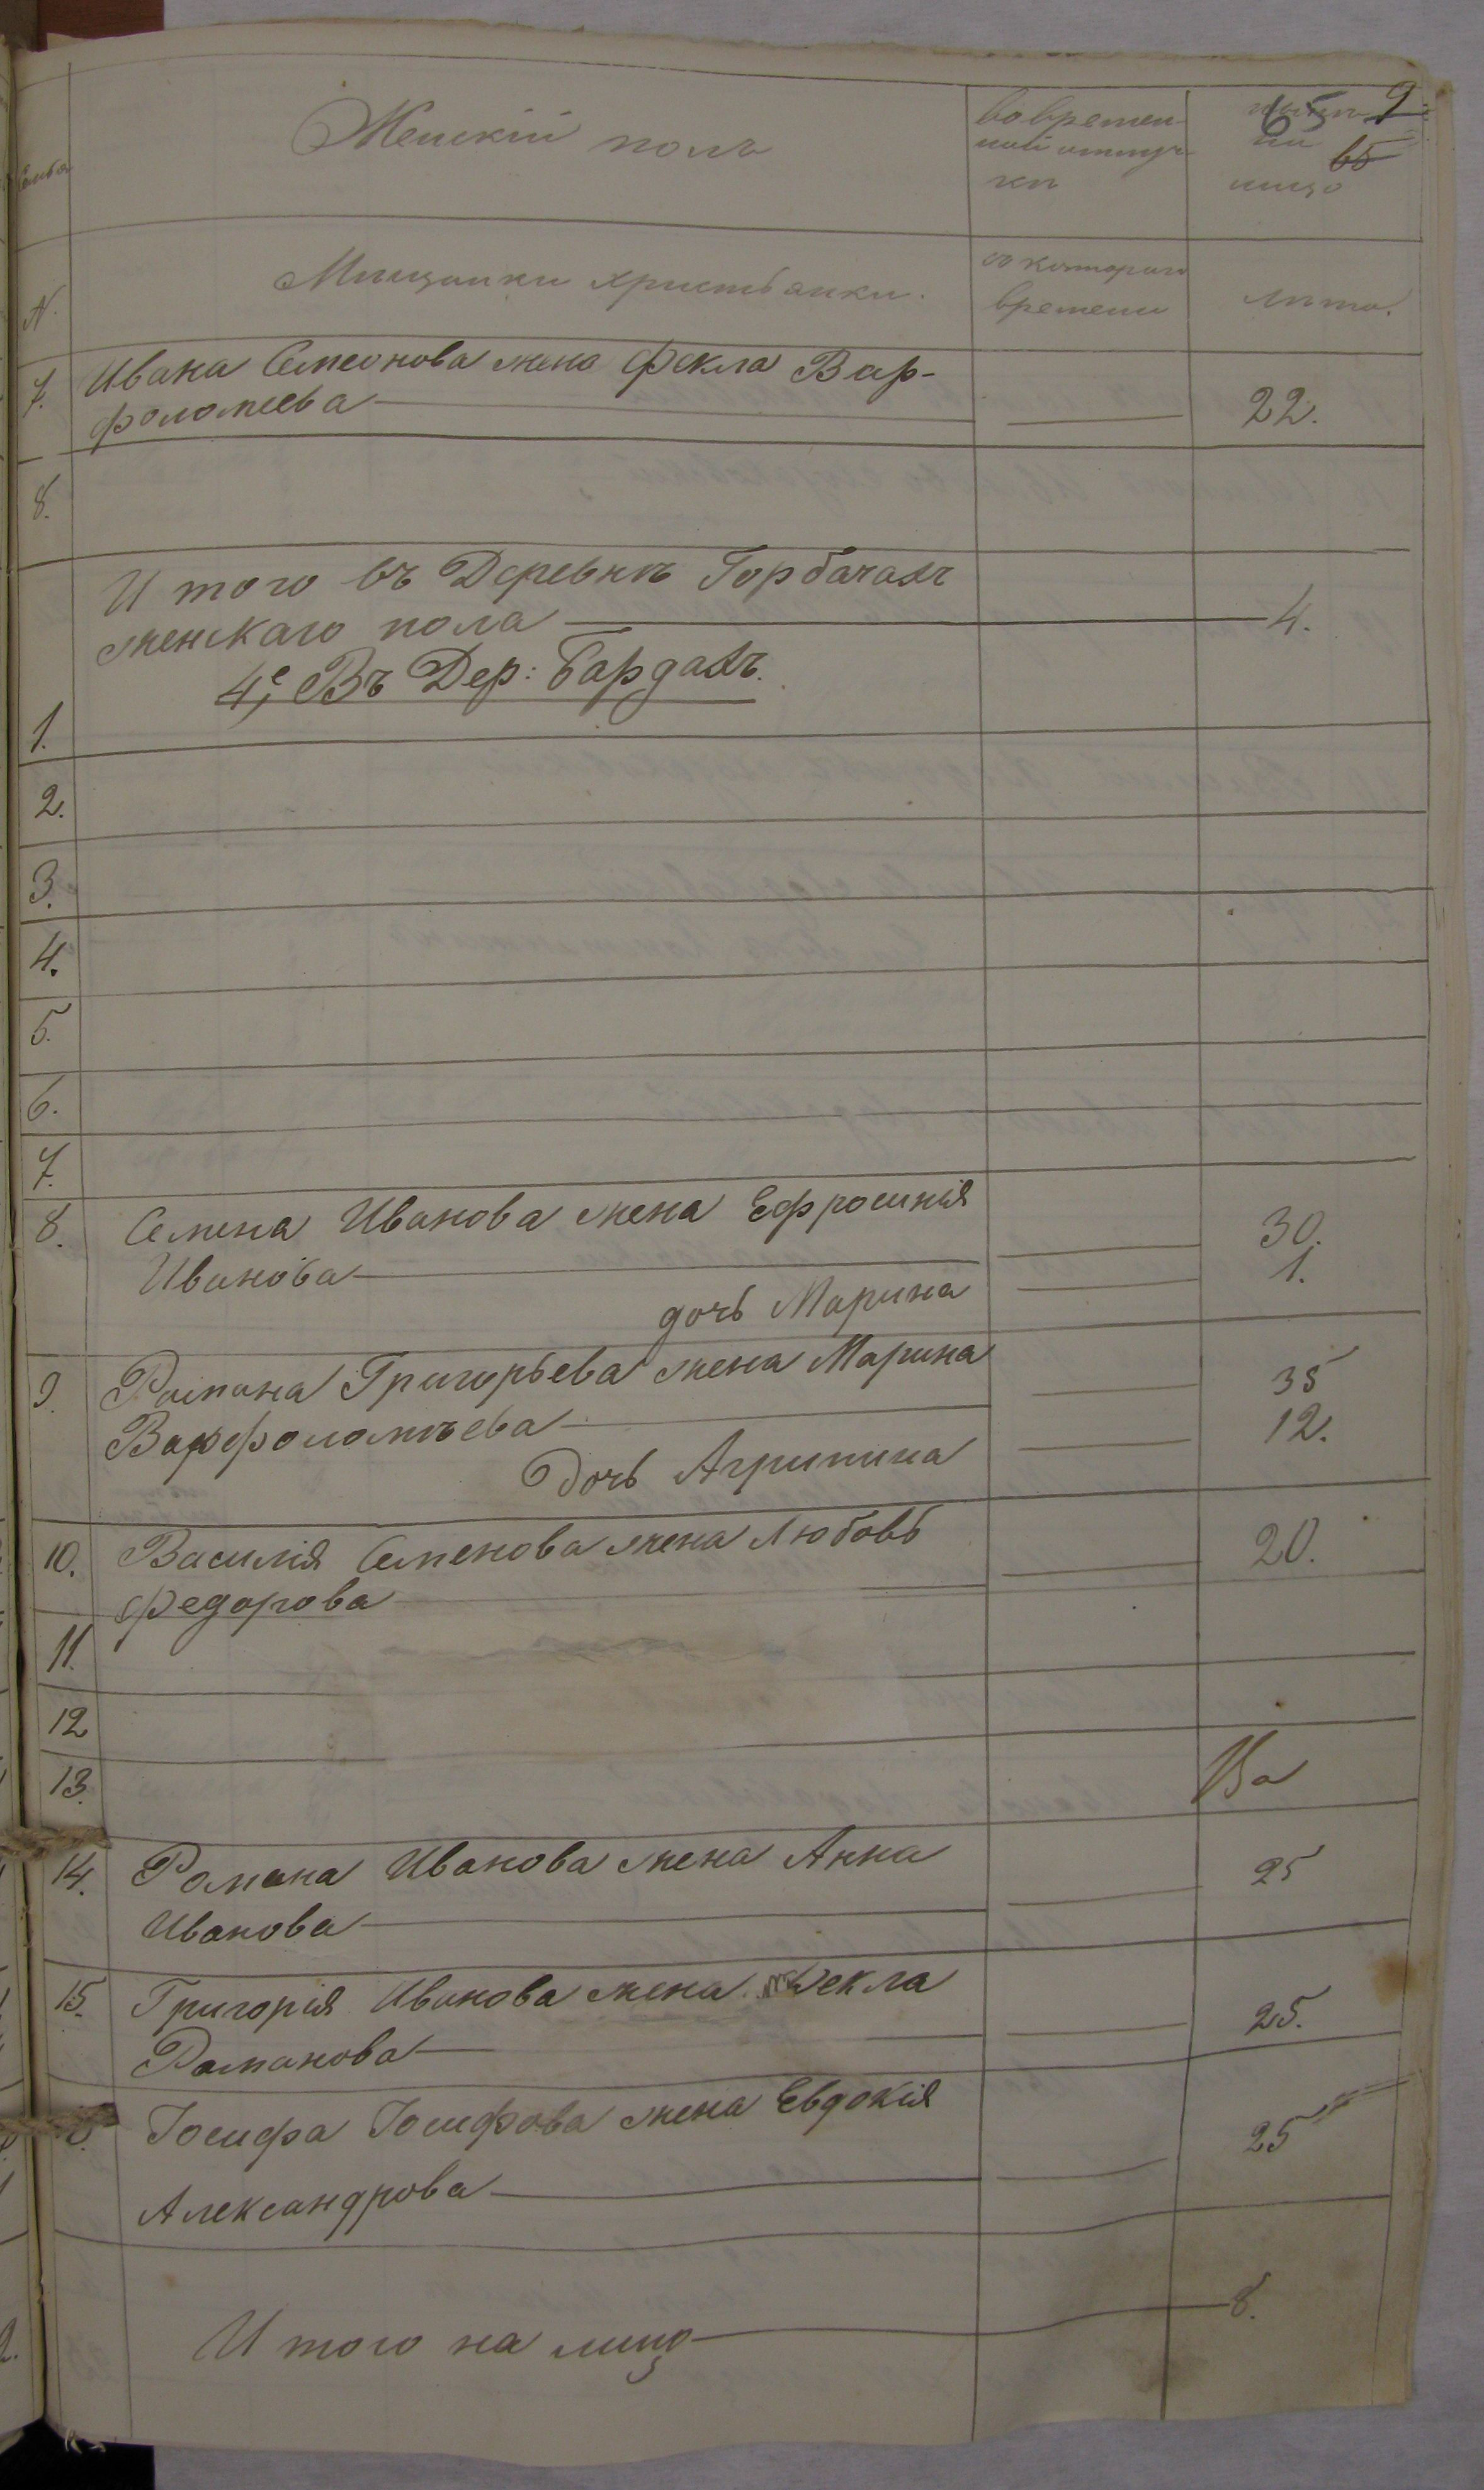 65 9
65
Семья
Женскій полъ
во времен-
ной отлуч-
кѣ
нынѣ
на
лицо
N.
Мещанки христьянки.
съ котораго
времени
лѣта.
7. Ивана Семеонова жена Фекла Вар-
фоломеева 22.
8.
И того въ Деревнѣ Горбачахъ
женскаго пола 4.
4е, Въ Дер: Бардахъ.
1.
2.
3.
4.
5.
6.
7.
8. Семена Иванова жена Ефросинія
Иванова 30.
дочь Марина 1.
9. Романа Григорьева жена Марина
Варфоломѣева 35
Дочь Агрипина 12.
10. Василія Семенова жена Любовь
Федорова 20.
11.
12
13.
14. Романа Иванова жена Анна
Иванова 25
15. Григорія Иванова жена Фекла
Романова 25.
Іосифа Іосифова жена Евдокія
Александрова 25
И того на лицо 8.